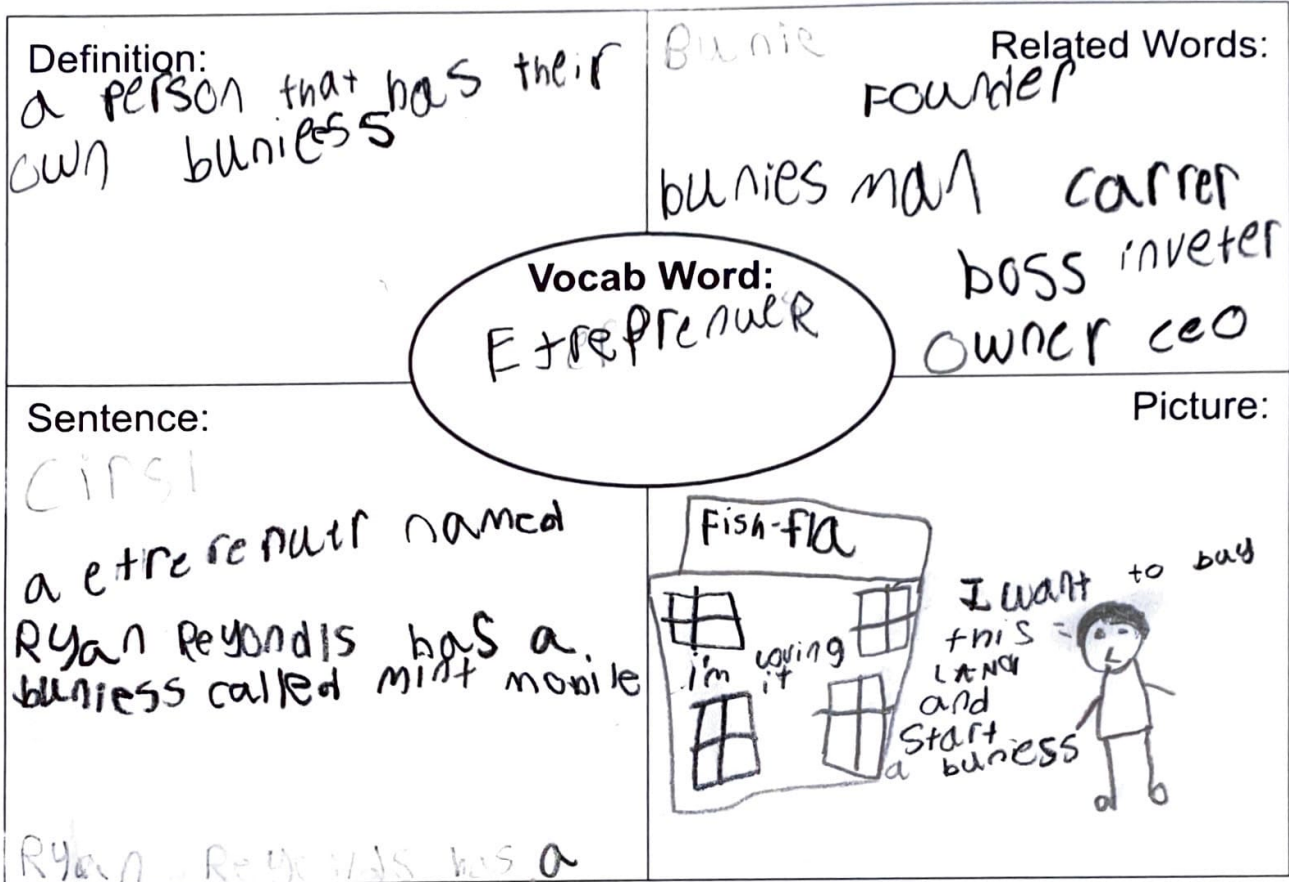 Definition:
a person that has their
own buniess
Bunie
Related Words:
Founder
bunies man carrer
boss inveter
owner ceo
Vocab Word:
EtreprenueR
Sentence:
Cirsl
a etrerenuer named
Ryan Reyondls has a
buniess called mint mobile
Ryan Reyonds has a
Picture:
Fish-fla
i'm loving
it
I want to buy
this
LANd
and
start
a buniess